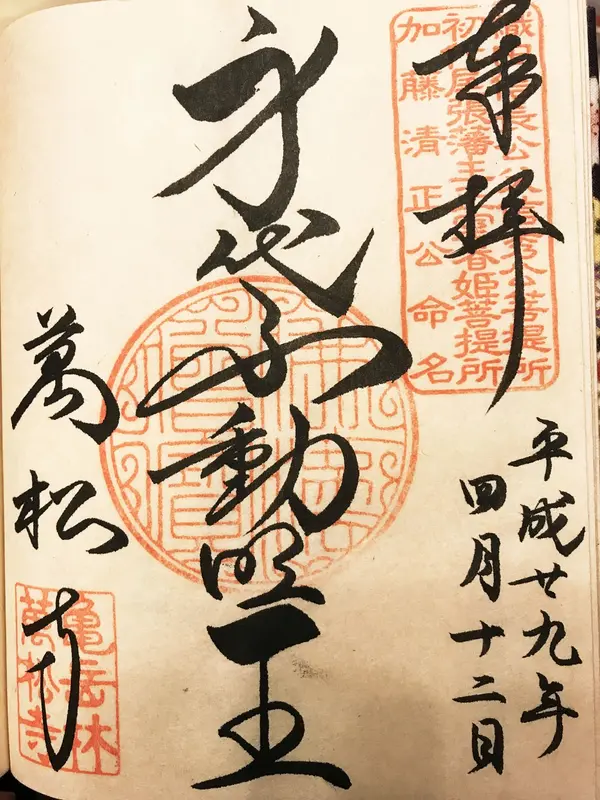 奉拝
織田信長公父信秀公菩提所
初代尾張藩主正室春姫菩提所
加藤清正公命名
平成廿九年
四月十二日
身代不動明王
萬松寺
亀岳林
萬松寺